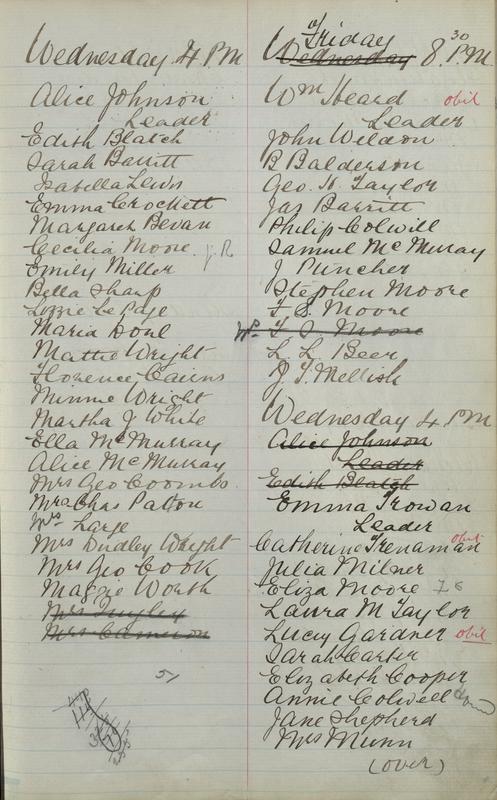 Wednesday 4 P M
Alice Johnson
Leader
Edith Blatch
Sarah Barritt
Isabella Lewis
Emma Crockett
Margaret Bevan
Cecilia Moore. J.R
Emily Miller
Bella Sharp
Lizzie Le Page
Maria Doul
Mattie Wright
Florence Cairns
Minnie Wright
Martha J White
Ella McMurray
Alice McMurray
Mrs Geo Coombs
Mrs Chas Patton
Mrs Large
Mrs Dudley Wright
Mrs Geo Cook
Maggie Worth
Mrs Quigley
Mrs Cameron
51
Friday
Wednesday 8.30 P.M.
Wm Heard obit
Leader
John Weldon
R Balderson
Geo. H. Taylor
Jas Barritt
Philip Colwill
Samuel McMurray
J Puncher
Stephen Moore
F S. Moore
W. F S. Moore
L. L. Beer
J. T. Mellish
Wednesday 4 P M
Alice Johnson
Leader
Edith Blatch
Emma Trowan
Leader
Catherine Trenaman obit
Julia Milner
Eliza Moore 76
Laura M Taylor
Lucy Gardner obit
Sarah Carter
Elizabeth Cooper
Annie Colwell
Jane Shepherd
Mrs Munn
(over)